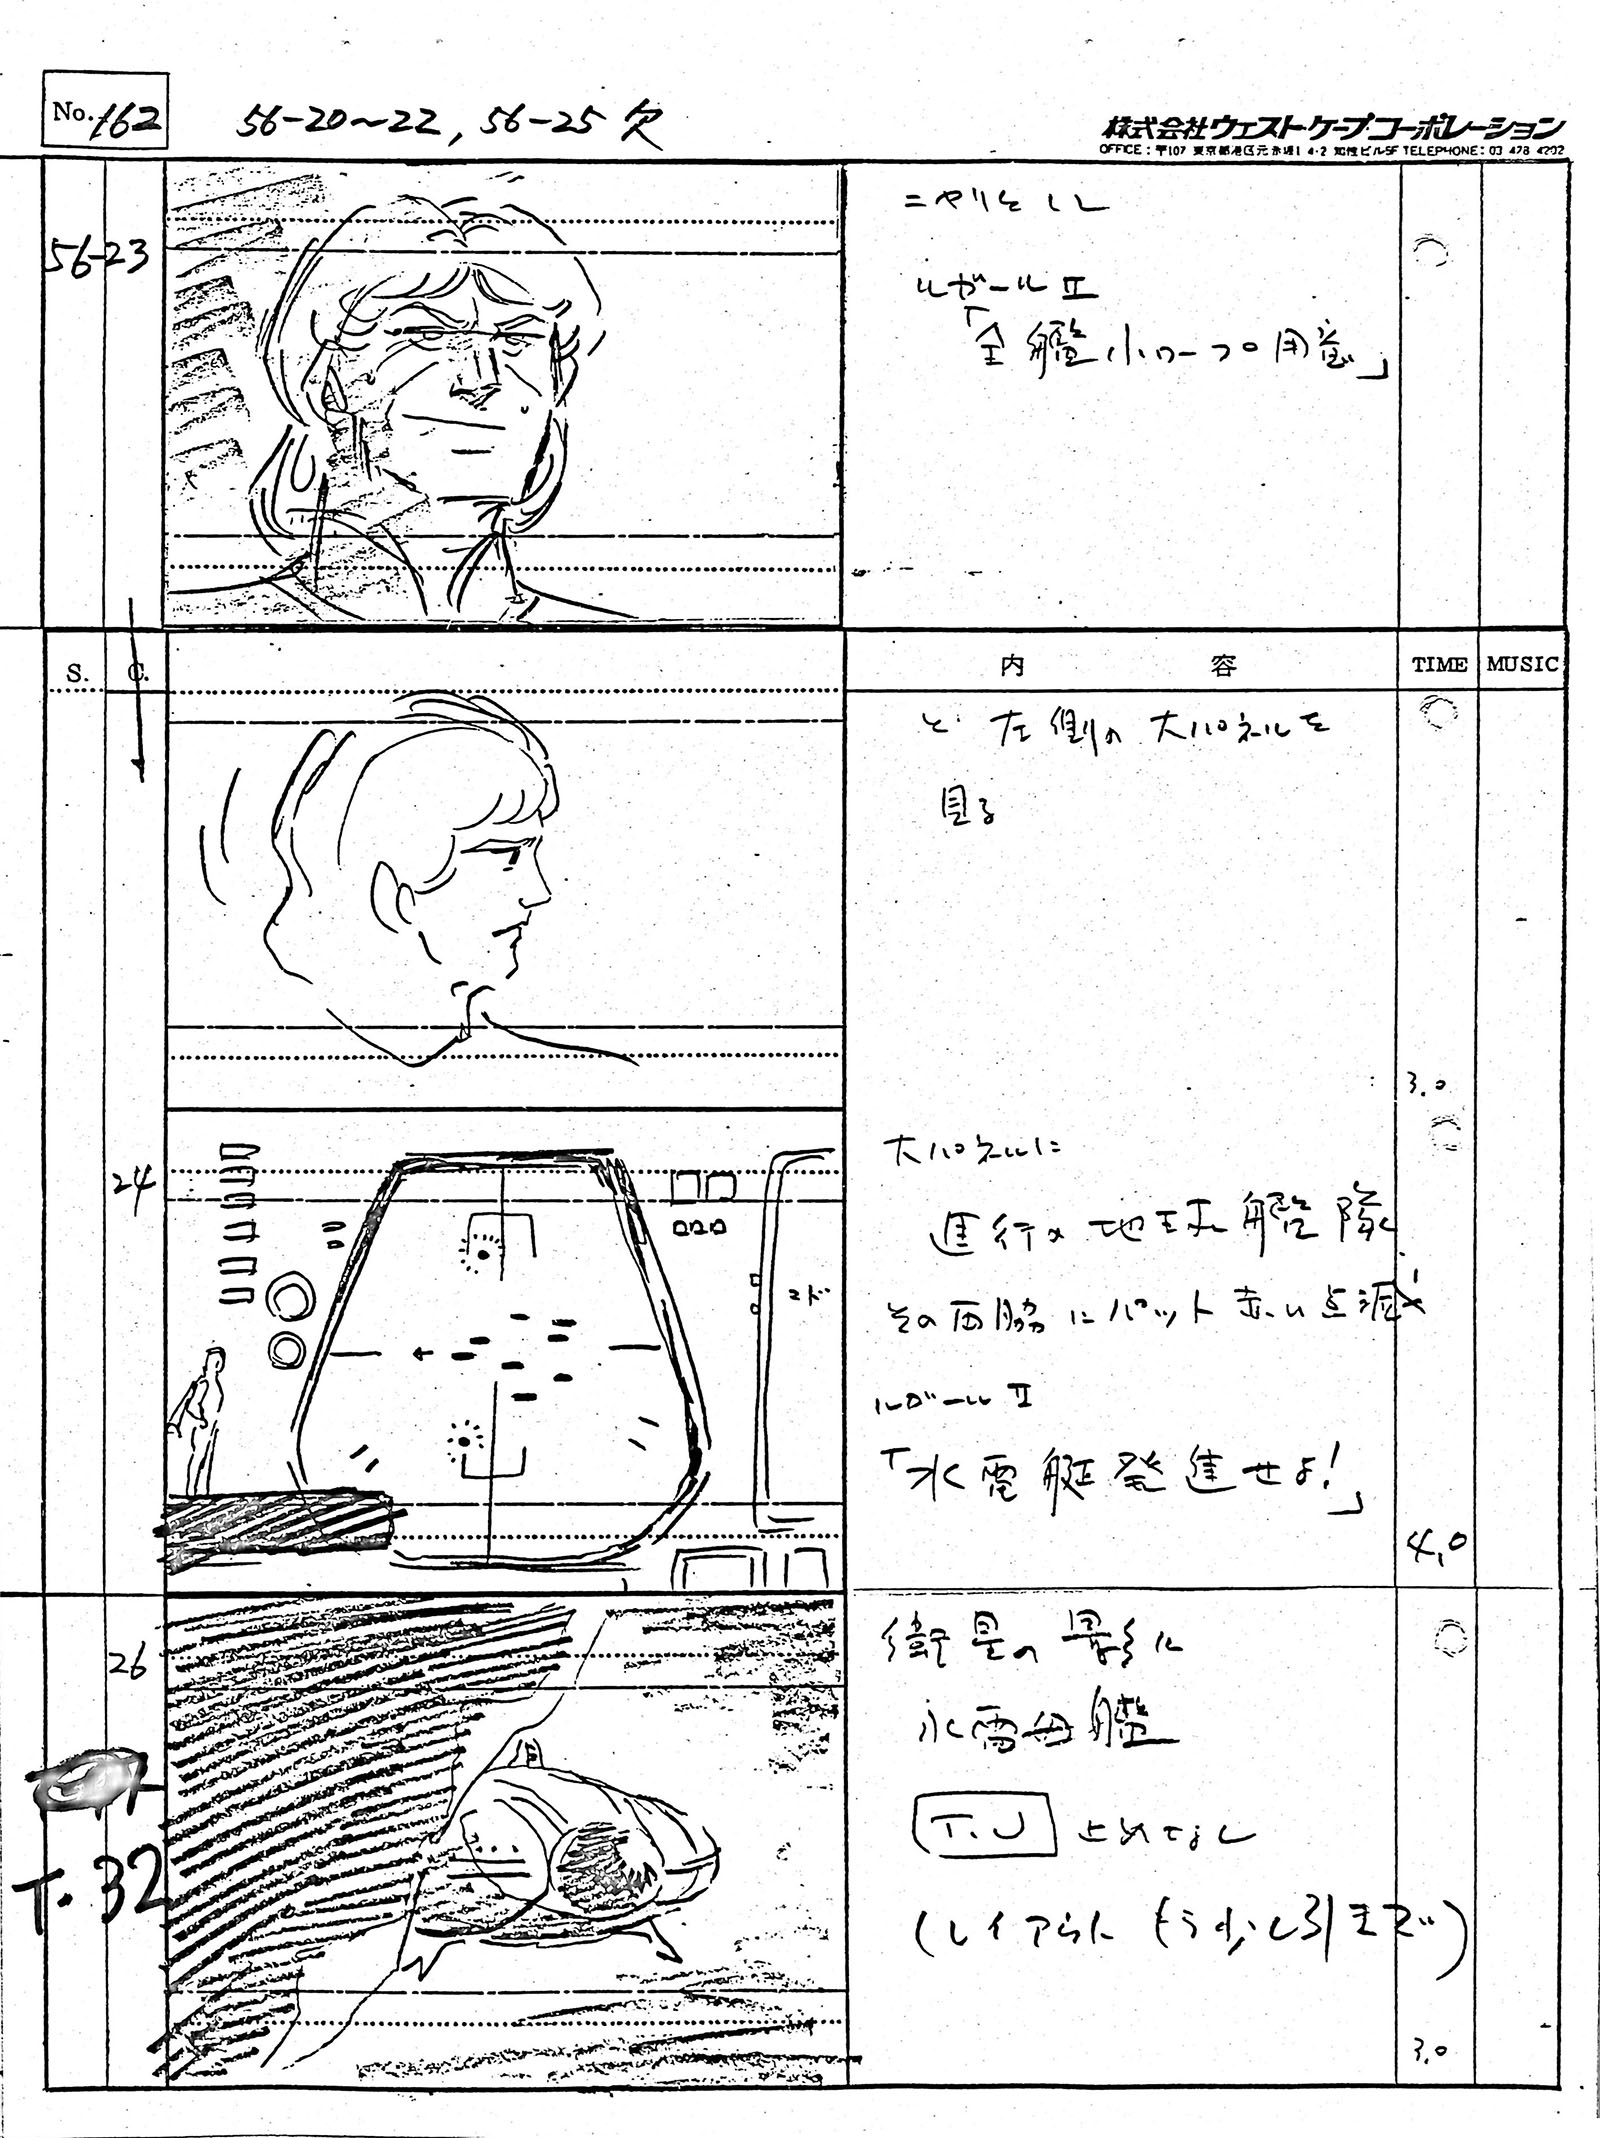 No. 162
56-20〜22, 56-25 欠
株式会社ウェスト・ケープ・コーポレーション
OFFICE : 〒107 東京都港区元赤坂1-4-2 TELEPHONE: 03 478 4202
56-23
ニヤリとして
ルガールII
「全艦小ワープ用意」
S. C. 内 容 TIME MUSIC
と 左側の大パネルを
見る
3.0
24
大パネルに
進行の地球艦隊
その両脇にパット赤い点滅
ルガールII
「水雷艇発進せよ!」
4.0
26
衛星の影に
水雷母艦
T.U 止めなし
(レイアウトもう少し引きで)
T.32
3.0